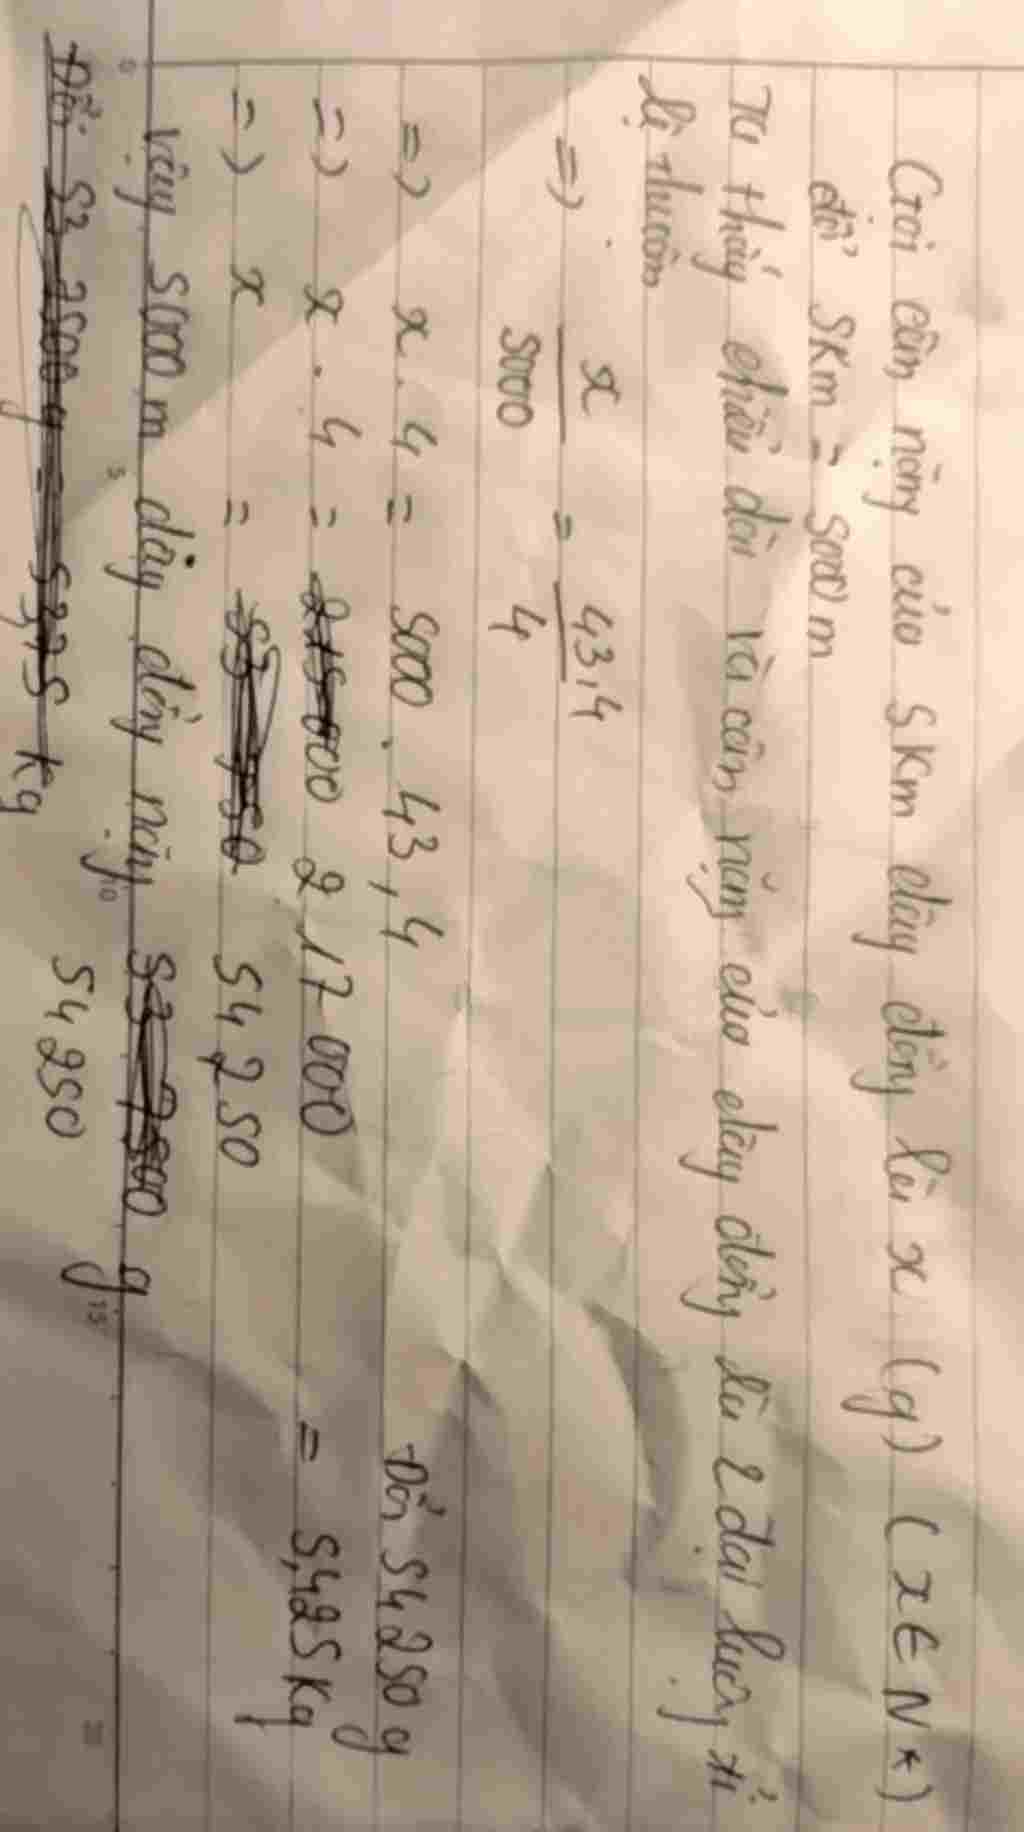 Gọi cân nặng của 5Km dây đồng là x (g) (x ∈ N*)
đổi 5Km = 5000m
Ta thấy chiều dài và cân nặng của dây đồng là 2 đại lượng tỉ
lệ thuận
=> x/5000 = 43,4/4
=> x . 4 = 5000 . 43,4
=> x . 4 = 217 000
=> x = 54 250
Đổi 54 250 g
= 5,425 Kg
Vậy 5000m dây đồng nặng g
54 250